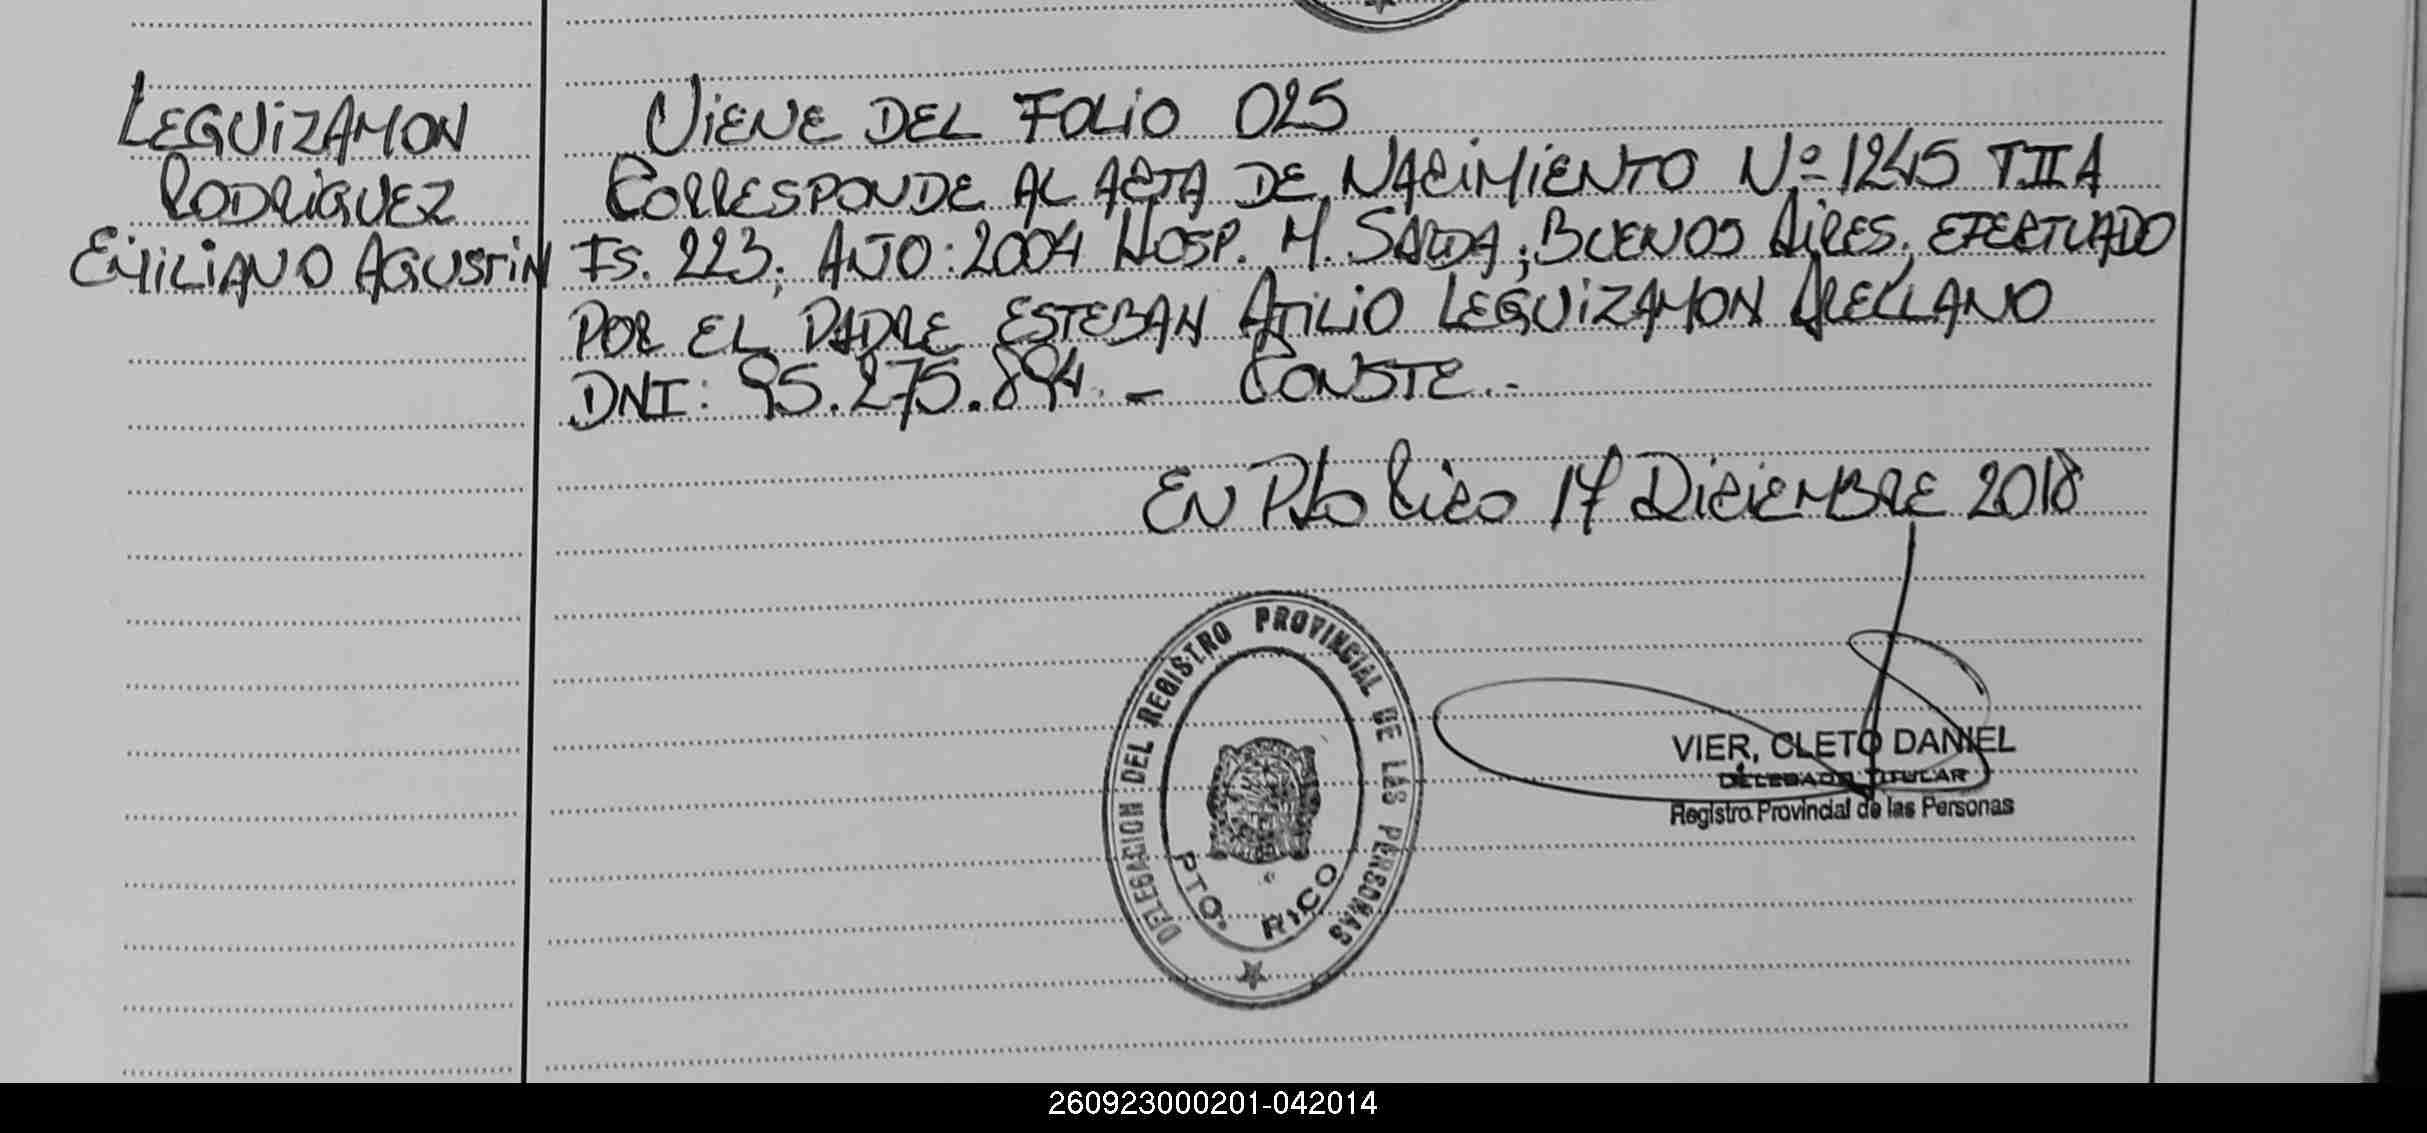 LEGUIZAMON
RODRIGUEZ
EMILIANO AGUSTIN
VIENE DEL FOLIO 025
CORRESPONDE AL ACTA DE NACIMIENTO Nº 1245 T II A
Fs. 223, AÑO: 2004 HOSP. M. SARDA; BUENOS AIRES, EFECTUADO
POR EL PADRE ESTEBAN ATILIO LEGUIZAMON ARELLANO
DNI: 95.275.894. - CONSTE.-
EN Pto Rico 17 DICIEMBRE 2018
DELEGACION DEL REGISTRO PROVINCIAL DE LAS PERSONAS
PTO. RICO
VIER, CLETO DANIEL
DELEGADO TITULAR
Registro Provincial de las Personas
260923000201-042014